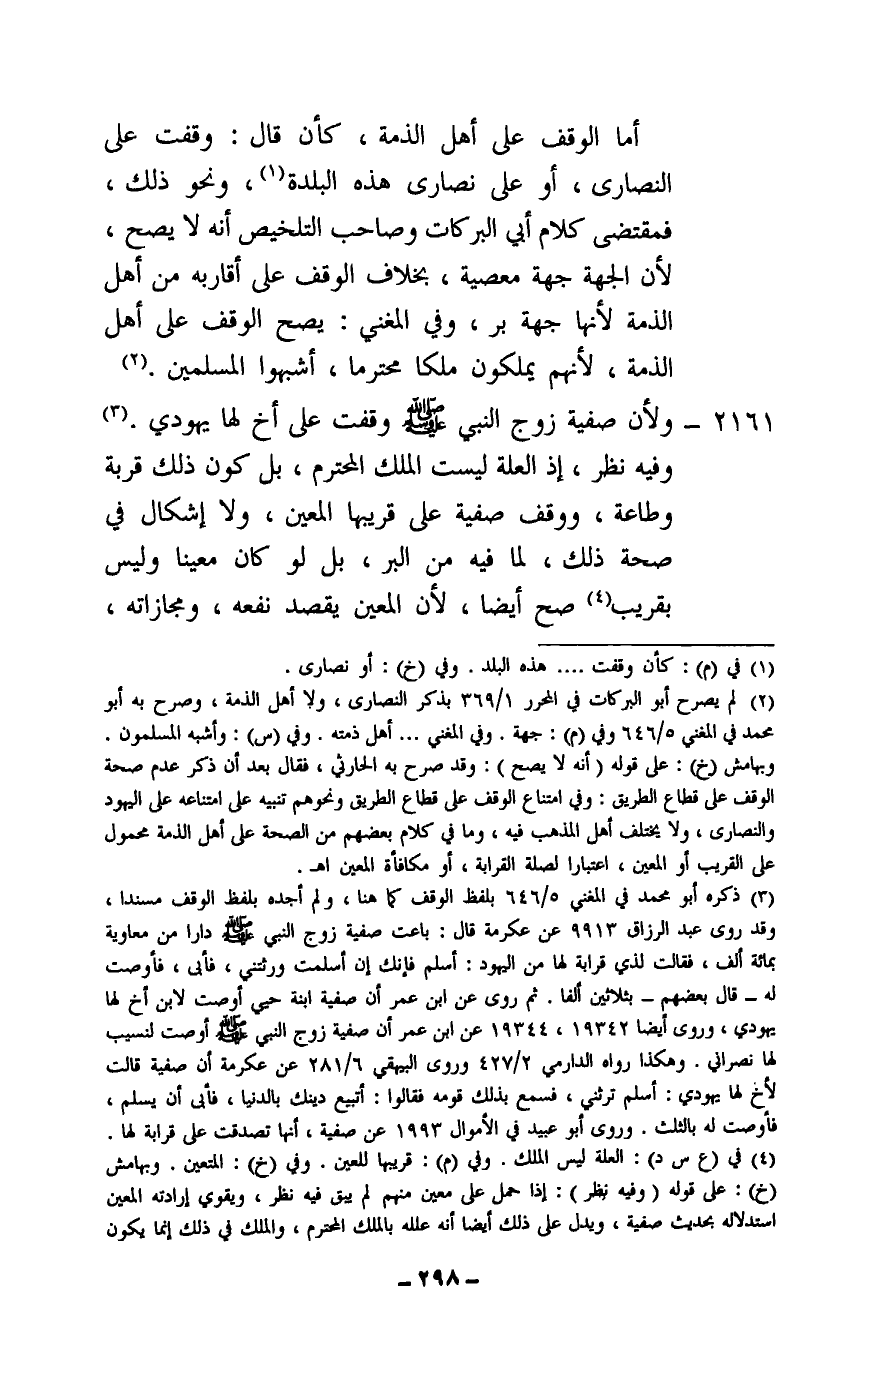 أما الوقف على أهل الذمة ، كأن قال : وقفت على
النصارى ، أو على نصارى هذه البلدة(١) ، ونحو ذلك ،
فمقتضى كلام أبي البركات وصاحب التلخيص أنه لا يصح ،
لأن الجهة جهة معصية ، بخلاف الوقف على أقاربه من أهل
الذمة لأنها جهة بر ، وفي المغني : يصح الوقف على أهل
الذمة ، لأنهم يملكون ملكا محترما ، أشبهوا المسلمين .(٢)
٢١٦١ – ولأن صفية زوج النبي ﷺ وقفت على أخ لها يهودي .(٣)
وفيه نظر ، إذ العلة ليست الملك المحترم ، بل كون ذلك قربة
وطاعة ، ووقف صفية على قريبها المعين ، ولا إشكال في
صحة ذلك ، لما فيه من البر ، بل لو كان معينا وليس
بقريب(٤) صح أيضا ، لأن المعين يقصد نفعه ، ومجازاته ،
(١) في (م) : كأن وقفت .... هذه البلد . وفي (خ) : أو نصارى .
(٢) لم يصرح أبو البركات في المحرر ٣٦٩/١ بذكر النصارى ، ولا أهل الذمة ، وصرح به أبو
محمد في المغني ٦٤٦/٥ وفي (م) : جهة . وفي المغني ... أهل ذمته . وفي (س) : وأشبه المسلمون .
وبهامش (خ) : على قوله ( أنه لا يصح ) : وقد صرح به الحارثي ، فقال بعد أن ذكر عدم صحة
الوقف على قطاع الطريق : وفي امتناع الوقف على قطاع الطريق ونحوهم تنبيه على امتناعه على اليهود
والنصارى ، ولا يختلف أهل المذهب فيه ، وما في كلام بعضهم من الصحة على أهل الذمة محمول
على القريب أو المعين ، اعتبارا لصلة القرابة ، أو مكافأة المعين اهـ .
(٣) ذكره أبو محمد في المغني ٦٤٦/٥ بلفظ الوقف كما هنا ، ولم أجده بلفظ الوقف مسندا ،
وقد روى عبد الرزاق ٩٩١٣ عن عكرمة قال : باعت صفية زوج النبي ﷺ دارا من معاوية
بمائة ألف ، فقالت لذي قرابة لها من اليهود : أسلم فإنك إن أسلمت ورثتني ، فأبى ، فأوصت
له – قال بعضهم – بثلاثين ألفا . ثم روى عن ابن عمر أن صفية ابنة حيي أوصت لابن أخ لها
يهودي ، وروى أيضا ١٩٣٤٢ ، ١٩٣٤٤ عن ابن عمر أن صفية زوج النبي ﷺ أوصت لنسيب
لها نصراني . وهكذا رواه الدارمي ٤٢٧/٢ وروى البيهقي ٢٨١/٦ عن عكرمة أن صفية قالت
لأخ لها يهودي : أسلم ترثني ، فسمع بذلك قومه فقالوا : أتبيع دينك بالدنيا ، فأبى أن يسلم ،
فأوصت له بالثلث . وروى أبو عبيد في الأموال ١٩٩٣ عن صفية ، أنها تصدقت على قرابة لها .
(٤) في (ع س د) : العلة ليس الملك . وفي (م) : قريبها للعين . وفي (خ) : المتعين . وبهامش
(خ) : على قوله ( وفيه نظر ) : إذا حمل على معين منهم لم يبق فيه نظر ، ويقوي إرادته المعين
استدلاله بحديث صفية ، ويدل على ذلك أيضا أنه علله بالملك المحترم ، والملك في ذلك إنما يكون
– ٢٩٨ –